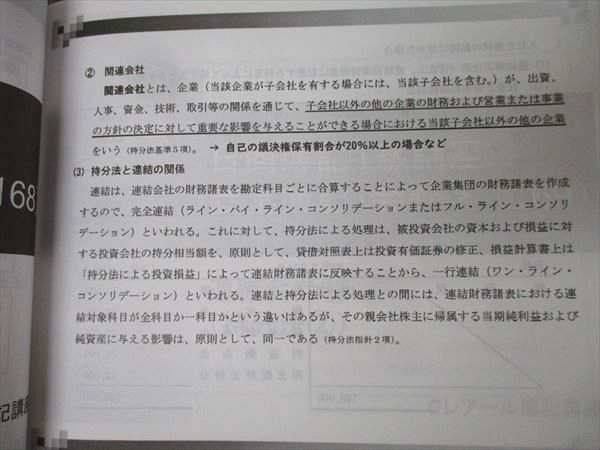 ② 関連会社
関連会社とは、企業（当該企業が子会社を有する場合には、当該子会社を含む。）が、出資、
人事、資金、技術、取引等の関係を通じて、子会社以外の他の企業の財務および営業または事業
の方針の決定に対して重要な影響を与えることができる場合における当該子会社以外の他の企業
をいう（持分法基準５項）。 → 自己の議決権保有割合が20％以上の場合など
(3) 持分法と連結の関係
連結は、連結会社の財務諸表を勘定科目ごとに合算することによって企業集団の財務諸表を作成
するので、完全連結（ライン・バイ・ライン・コンソリデーションまたはフル・ライン・コンソリ
デーション）といわれる。これに対して、持分法による処理は、被投資会社の資本および損益に対
する投資会社の持分相当額を、原則として、貸借対照表上は投資有価証券の修正、損益計算書上は
「持分法による投資損益」によって連結財務諸表に反映することから、一行連結（ワン・ライン・
コンソリデーション）といわれる。連結と持分法による処理との間には、連結財務諸表における連
結対象科目が全科目か一科目かという違いはあるが、その親会社株主に帰属する当期純利益および
純資産に与える影響は、原則として、同一である（持分法指針２項）。
168
記講座